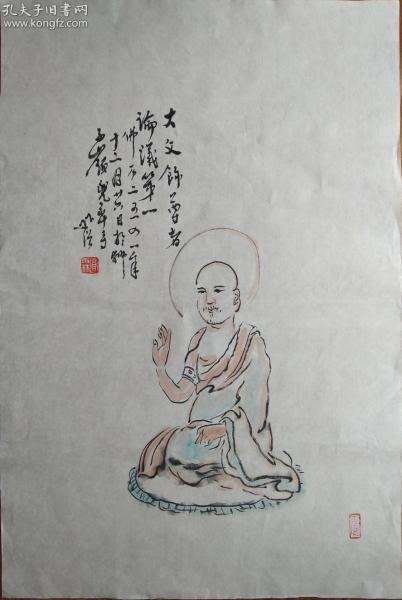 孔夫子旧书网
www.kongfz.com
大文飾尊者
論議第一
佛元二五四一年
十二月廿六日於獅
子嶺兜率寺